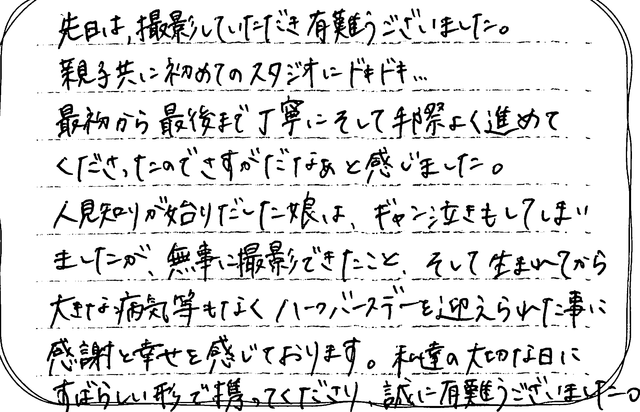 先日は、撮影していただき有難うございました。
親子共に初めてのスタジオにドキドキ…
最初から最後まで丁寧にそして手際よく進めて
くださったのでさすがだなぁと感じました。
人見知りが始りだした娘は、ギャン泣きもしてしまい
ましたが、無事に撮影できたこと、そして生まれてから
大きな病気等もなくハーフバースデーを迎えられた事に
感謝と幸せを感じております。私達の大切な日に
すばらしい形で携ってくださり、誠に有難うございました。